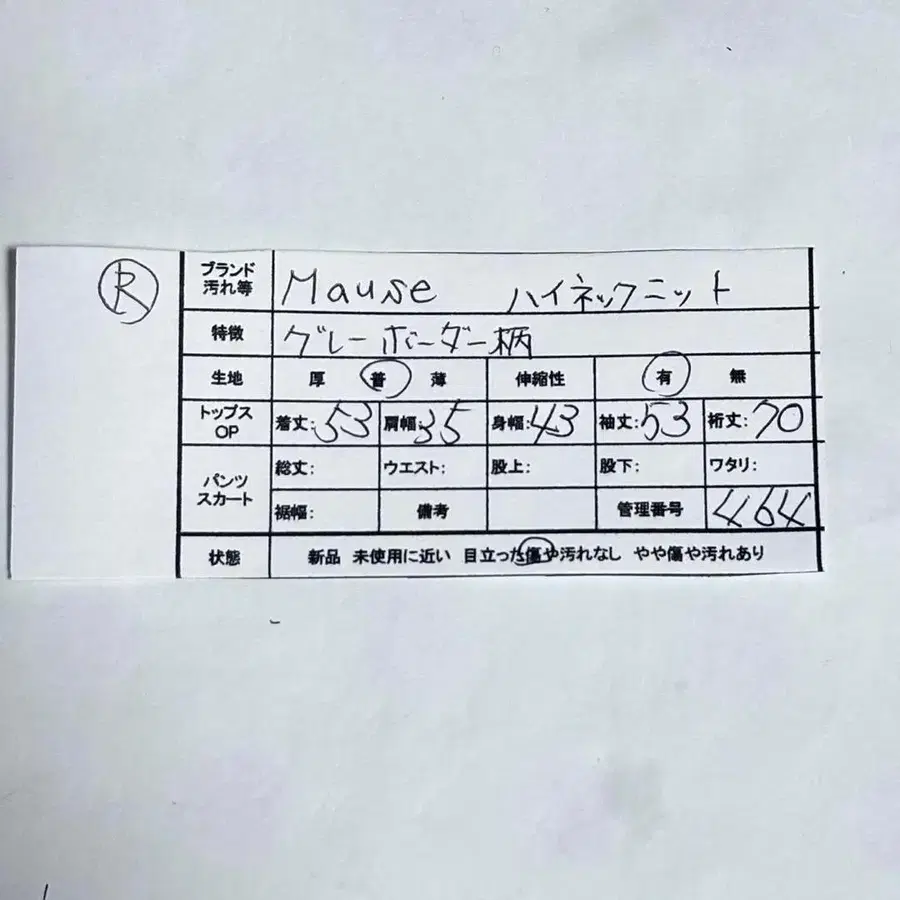 R
ブランド 汚れ等 Mause ハイネックニット
特徴 グレーボーダー柄
生地 厚 普 薄 伸縮性 有 無
トップス OP 着丈:53 肩幅:35 身幅:43 袖丈:53 裄丈:70
パンツ スカート 総丈: ウエスト: 股上: 股下: ワタリ:
裾幅: 備考 管理番号 464
状態 新品 未使用に近い 目立った傷や汚れなし やや傷や汚れあり